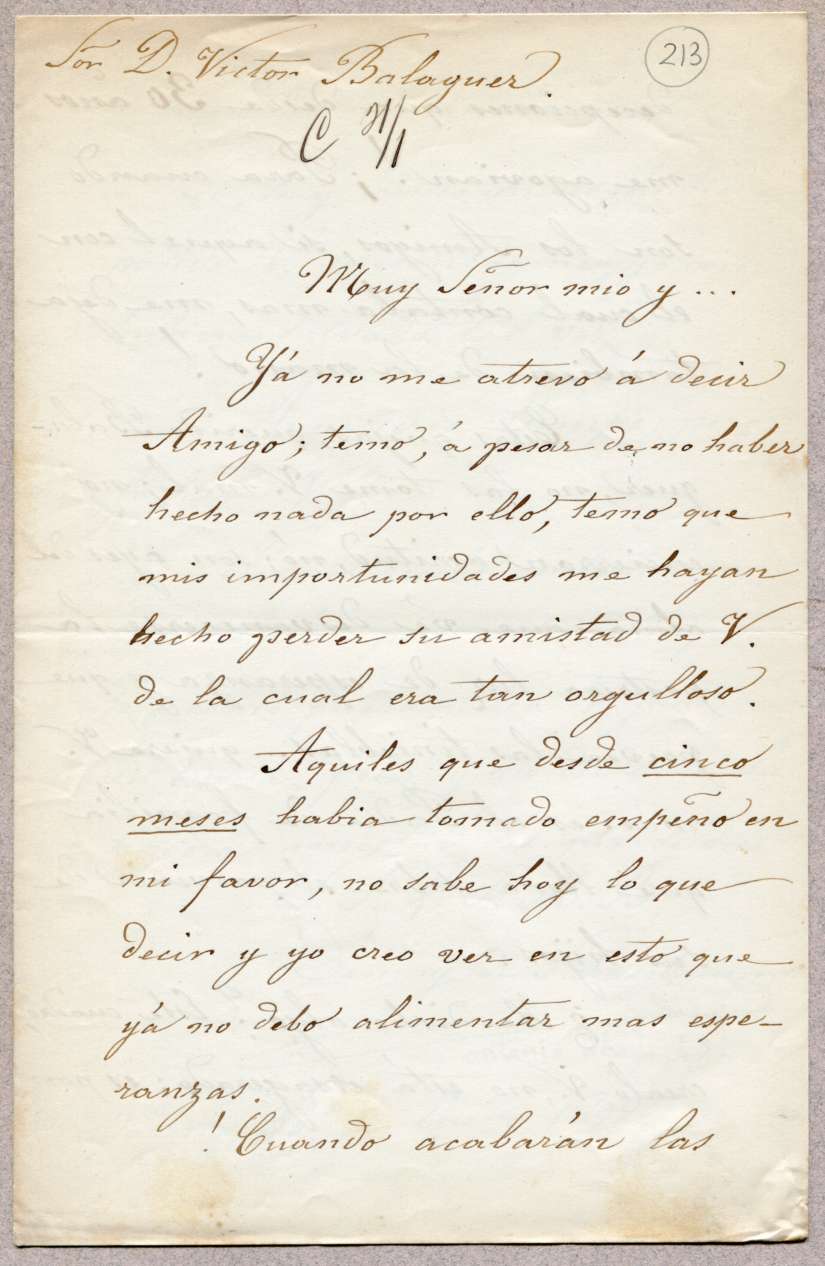 Sor D. Victor Balaguer.
213
C 21/1
Muy Señor mio y ...
Yá no me atrevo á decir
Amigo; temo, á pesar de no haber
hecho nada por ello, temo que
mis importunidades me hayan
hecho perder su amistad de V.
de la cual era tan orgulloso.
Aquiles que desde cinco
meses habia tomado empeño en
mi favor, no sabe hoy lo que
decir y yo creo ver en esto que
yá no debo alimentar mas espe-
ranzas.
! Cuando acabarán las